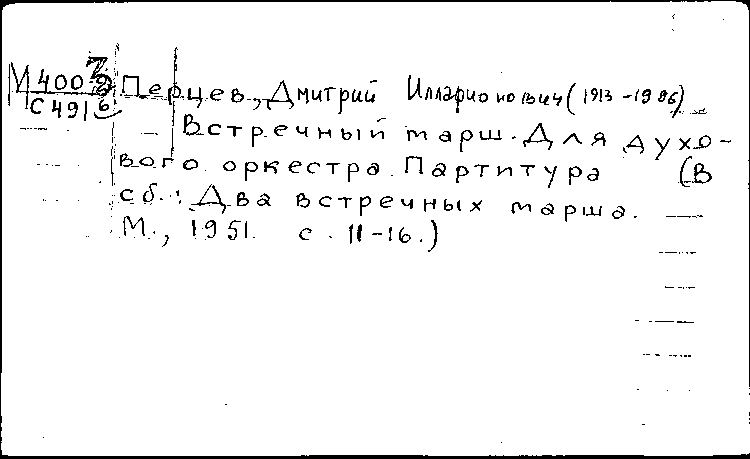 М 400
С 491 Перцев, Дмитрий Илларионович (1913 - 1986)
Встречный марш. Для духо-
вого оркестра. Партитура (В
сб.: Два встречных марша.
М., 1951. с. 11-16.)